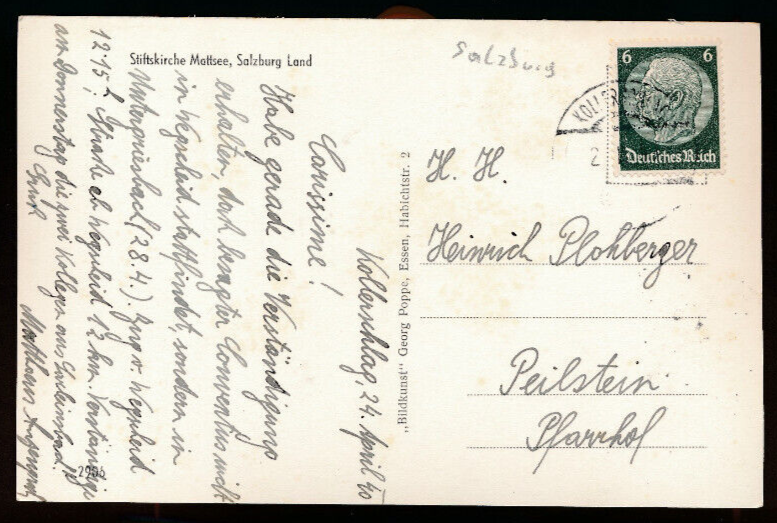 Stiftskirche Mattsee, Salzburg Land
Salzburg
6 6
Deutsches Reich
KOLLER
2
Kollerschlag, 24. April 40
Carissime!
Habe gerade die Verständigung
erhalten, daß besagter Conventus nicht
in Wegscheid stattfindet, sondern in
Untergriesbach (28.4.). Zug v. Wegscheid
12 15 h. Strecke ab Wegscheid 12 km. Verständige
am Donnerstag die zwei Kollegen aus
Gruß
Matthäus
2906
„Bildkunst" Georg Poppe, Essen, Habichtstr. 2
H. H.
Heinrich Plohberger
Peilstein
Pfarrhof